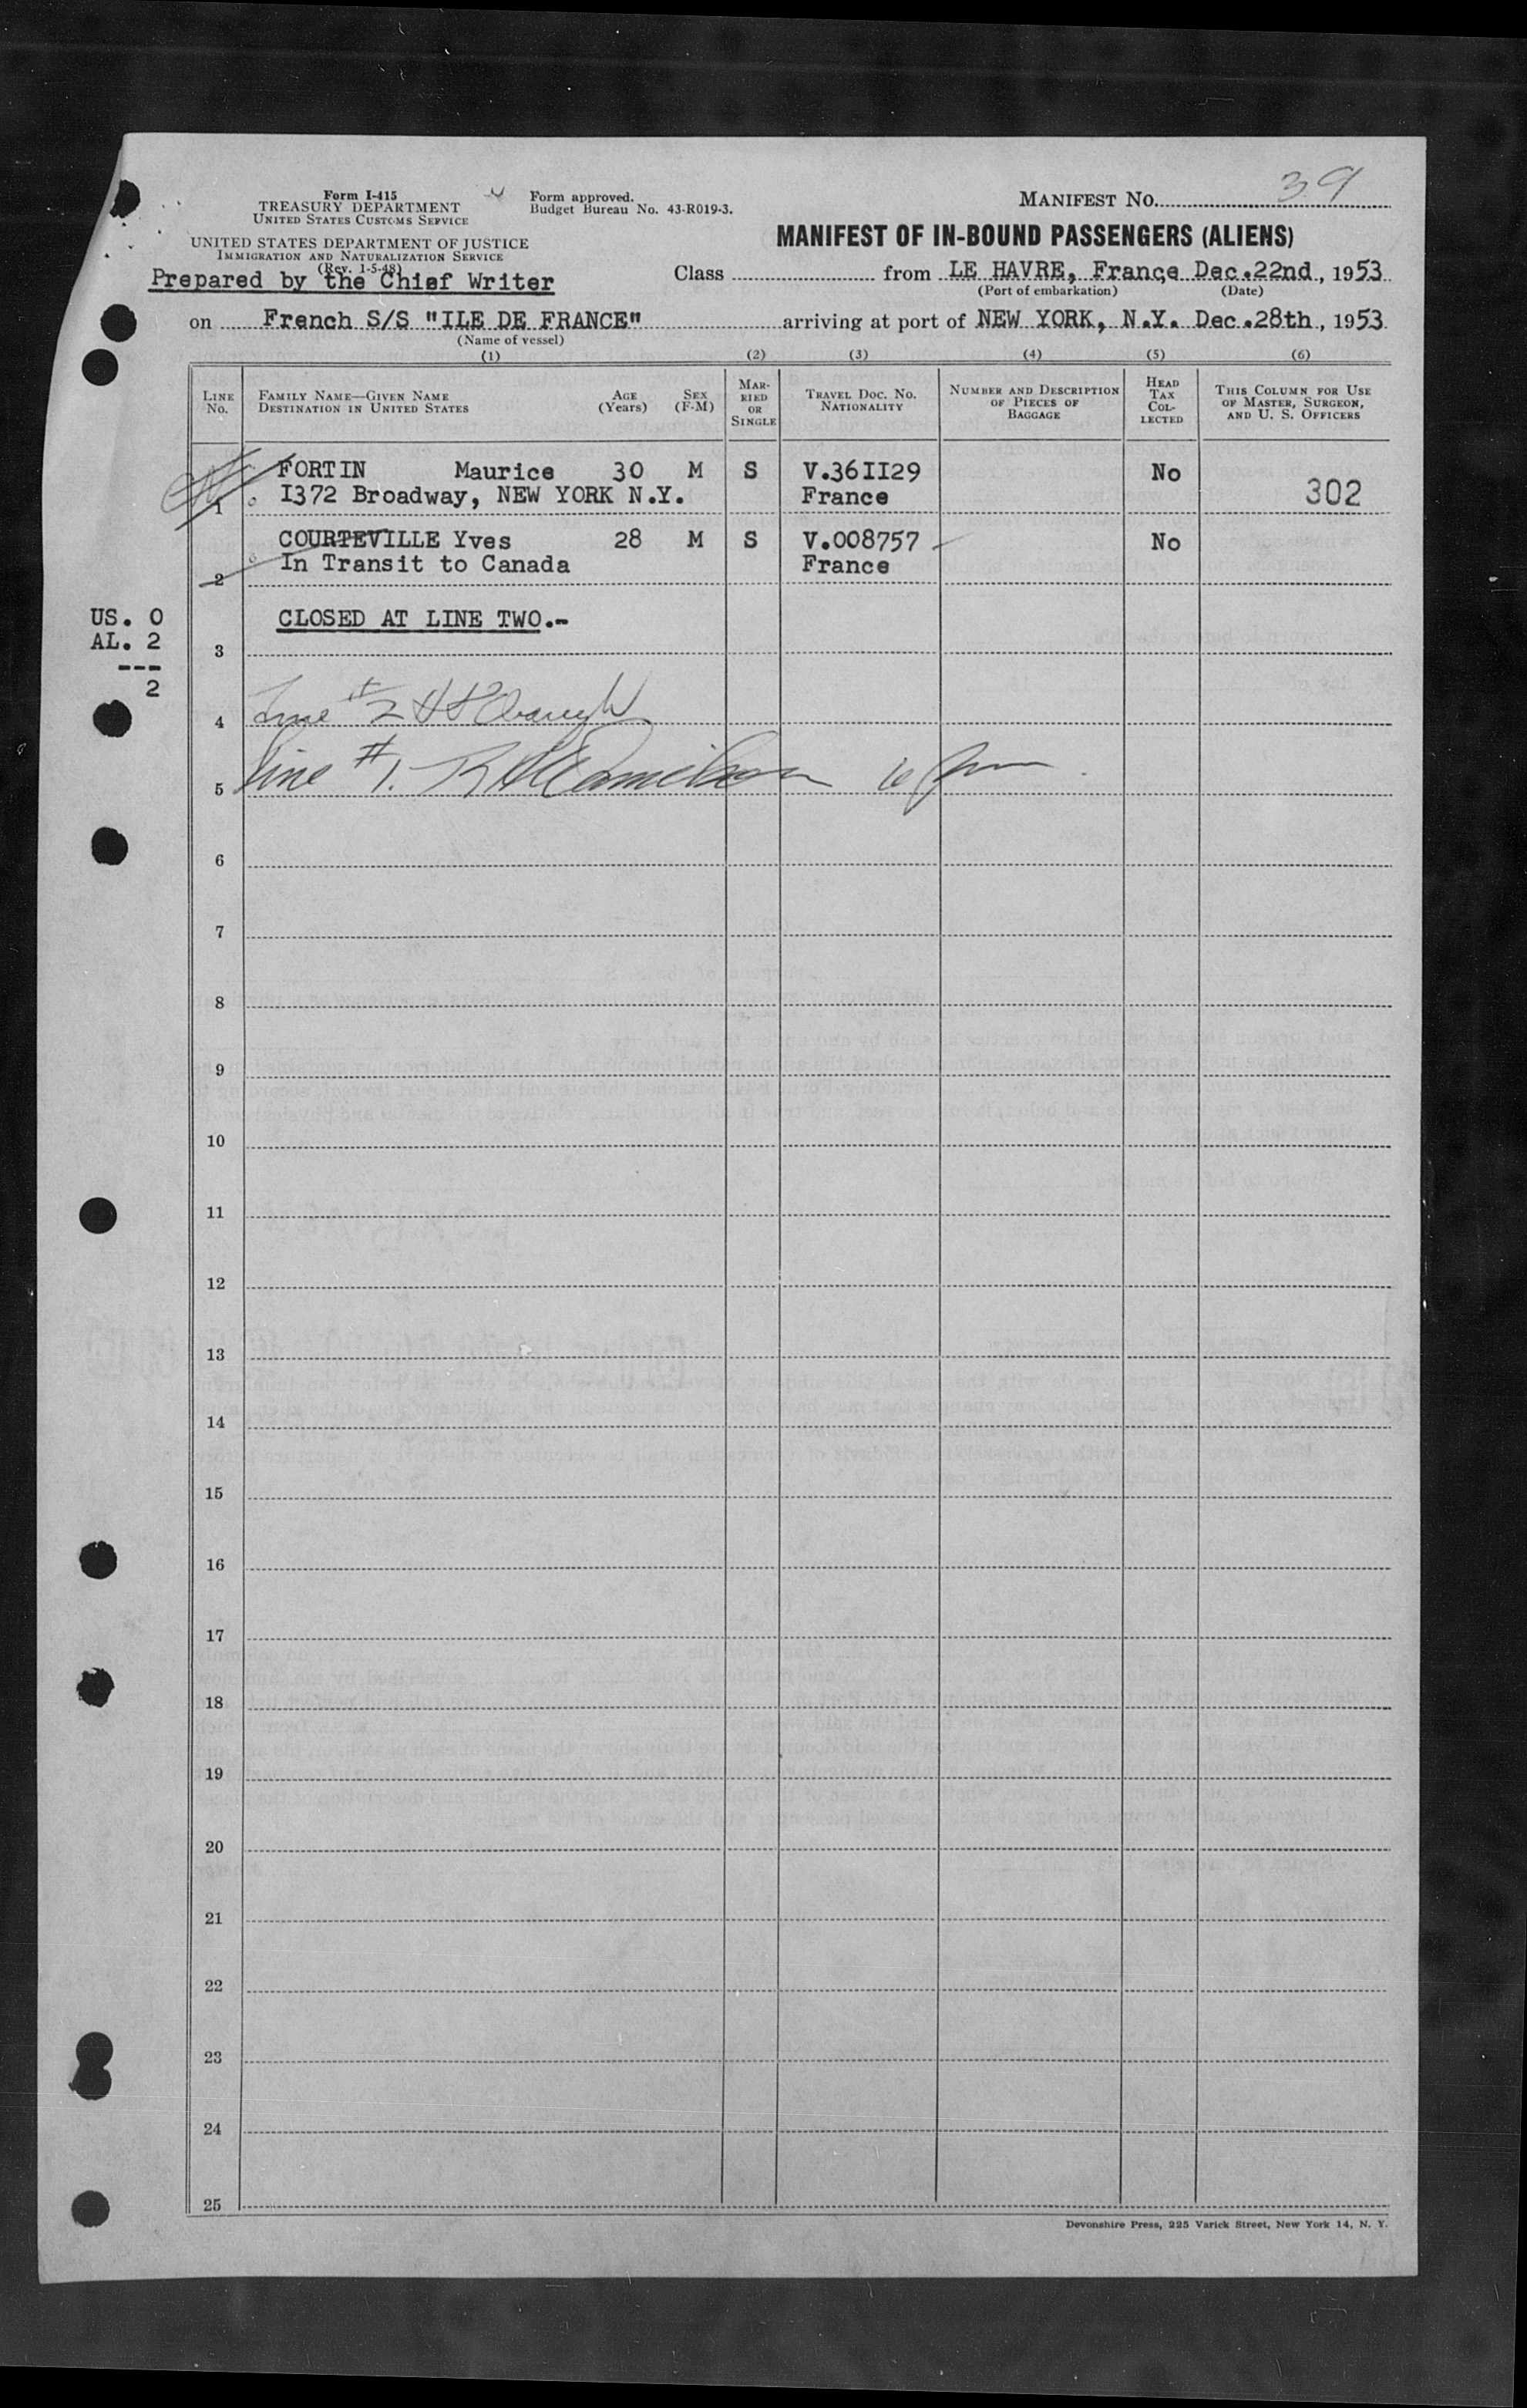 Form I-415
TREASURY DEPARTMENT
UNITED STATES CUSTOMS SERVICE
UNITED STATES DEPARTMENT OF JUSTICE
IMMIGRATION AND NATURALIZATION SERVICE
(Rev. 1-5-48)
Prepared by the Chief Writer
Form approved.
Budget Bureau No. 43-R019-3.
MANIFEST NO. 39
MANIFEST OF IN-BOUND PASSENGERS (ALIENS)
Class from LE HAVRE, France Dec. 22nd, 1953
(Port of embarkation) (Date)
on French S/S "ILE DE FRANCE" arriving at port of NEW YORK, N.Y. Dec. 28th, 1953
(Name of vessel)
(1) (2) (3) (4) (5) (6)
LINE NO. FAMILY NAME—GIVEN NAME DESTINATION IN UNITED STATES AGE (Years) SEX (F-M) MARRIED OR SINGLE TRAVEL DOC. NO. NATIONALITY NUMBER AND DESCRIPTION OF PIECES OF BAGGAGE HEAD TAX COLLECTED THIS COLUMN FOR USE OF MASTER, SURGEON, AND U. S. OFFICERS
FORTIN Maurice 30 M S V.36II29 No
1 I372 Broadway, NEW YORK N.Y. France 302
COURTEVILLE Yves 28 M S V.008757 No
2 In Transit to Canada France
US. 0
AL. 2
---
2
CLOSED AT LINE TWO.-
3
4 Line #2
5 Line #1.
6
7
8
9
10
11
12
13
14
15
16
17
18
19
20
21
22
23
24
25
Devonshire Press, 225 Varick Street, New York 14, N. Y.